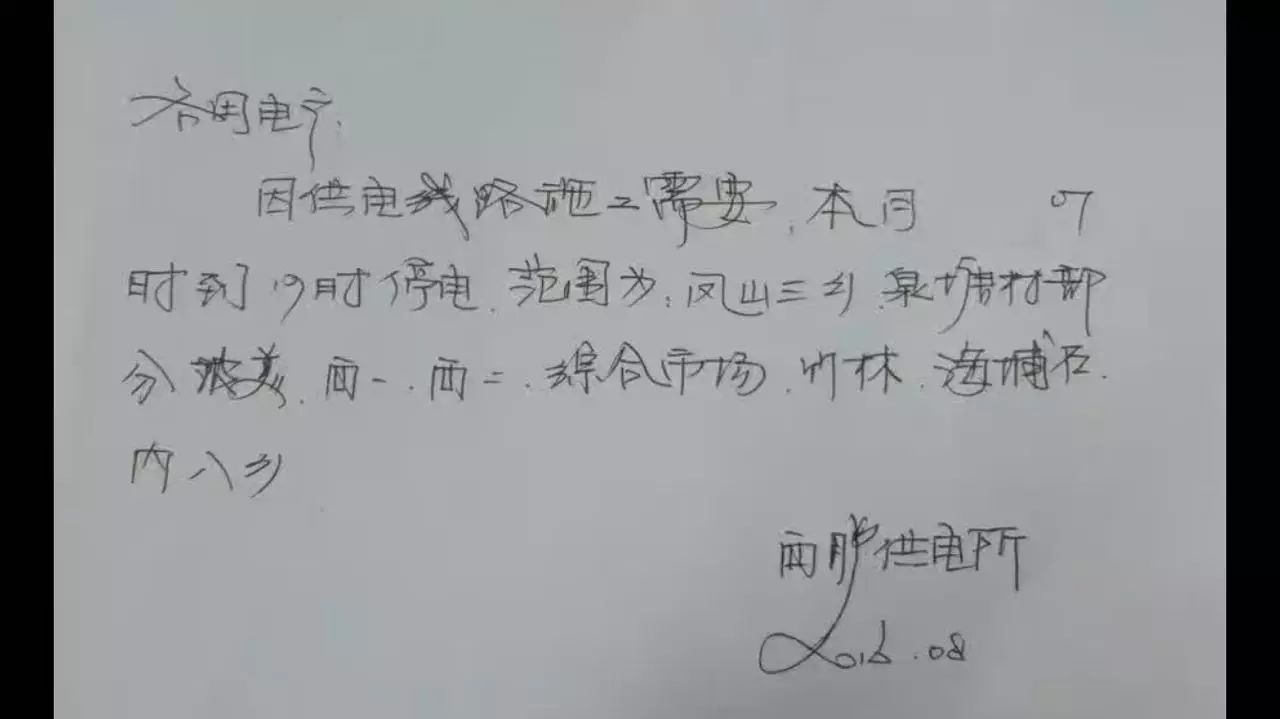 各用电户:
因供电线路施工需要,本月 07
时到19时停电.范围为:凤山三乡.泉塘村部
分.波美.西一.西二.综合市场.竹林.海埔石.
内八乡
西胪供电所
2016.08